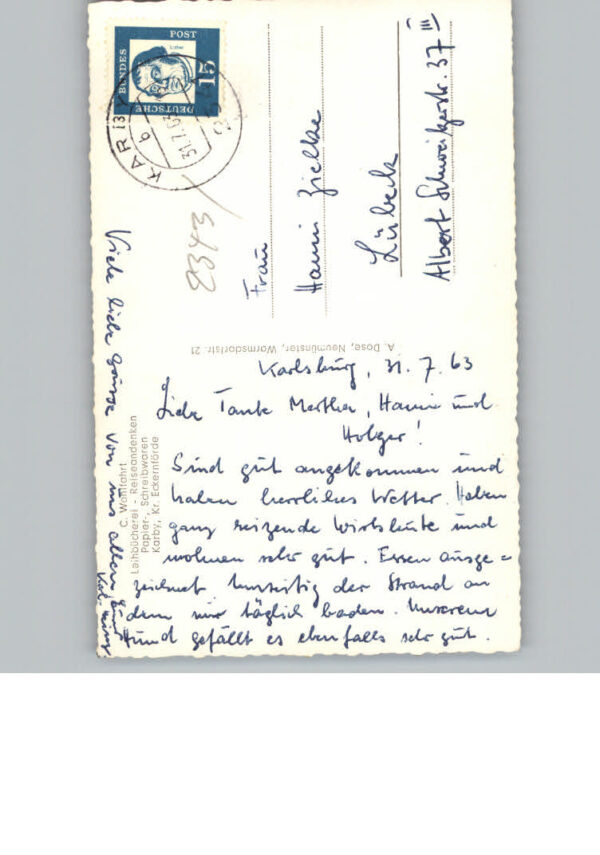 DEUTSCHE
BUNDES
POST
15
Luther
KARBY
b
31.7.63
2343
Frau
Hanni Zielke
Lübeck
Albert Schweitzerstr. 37 III
A. Dose, Neumünster, Warmsdorfstr. 21
C. Wohlfahrt
Leihbücherei - Reiseandenken
Papier-, Schreibwaren
Karby, Kr. Eckernförde
Karlsburg, 31. 7. 63
Liebe Tante Martha, Hanni und
Holger!
Sind gut angekommen und
haben herrliches Wetter. Haben
ganz reizende Wirtsleute und
wohnen sehr gut. Essen ausge=
zeichnet. der Strand an
dem wir täglich baden. Unserem
Hund gefällt es ebenfalls sehr gut.
Viele liebe Grüsse von uns allen